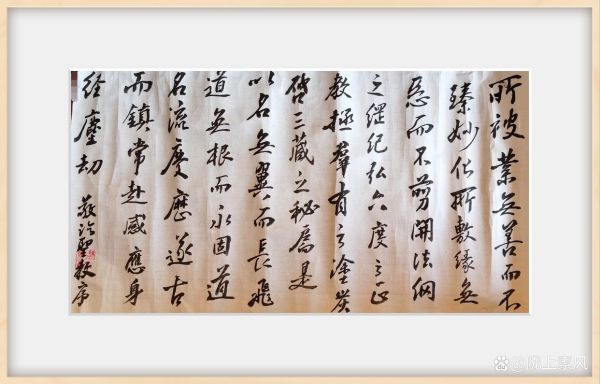 所被業無善而不
臻妙化所敷緣無
惡而不剪開法網
之綱紀弘六度之正
教拯羣有之塗炭
啓三藏之秘扃是
以名無翼而長飛
道無根而永固道
名流慶歷遂古
而鎮常赴感應身
經塵劫
敬臨聖教序